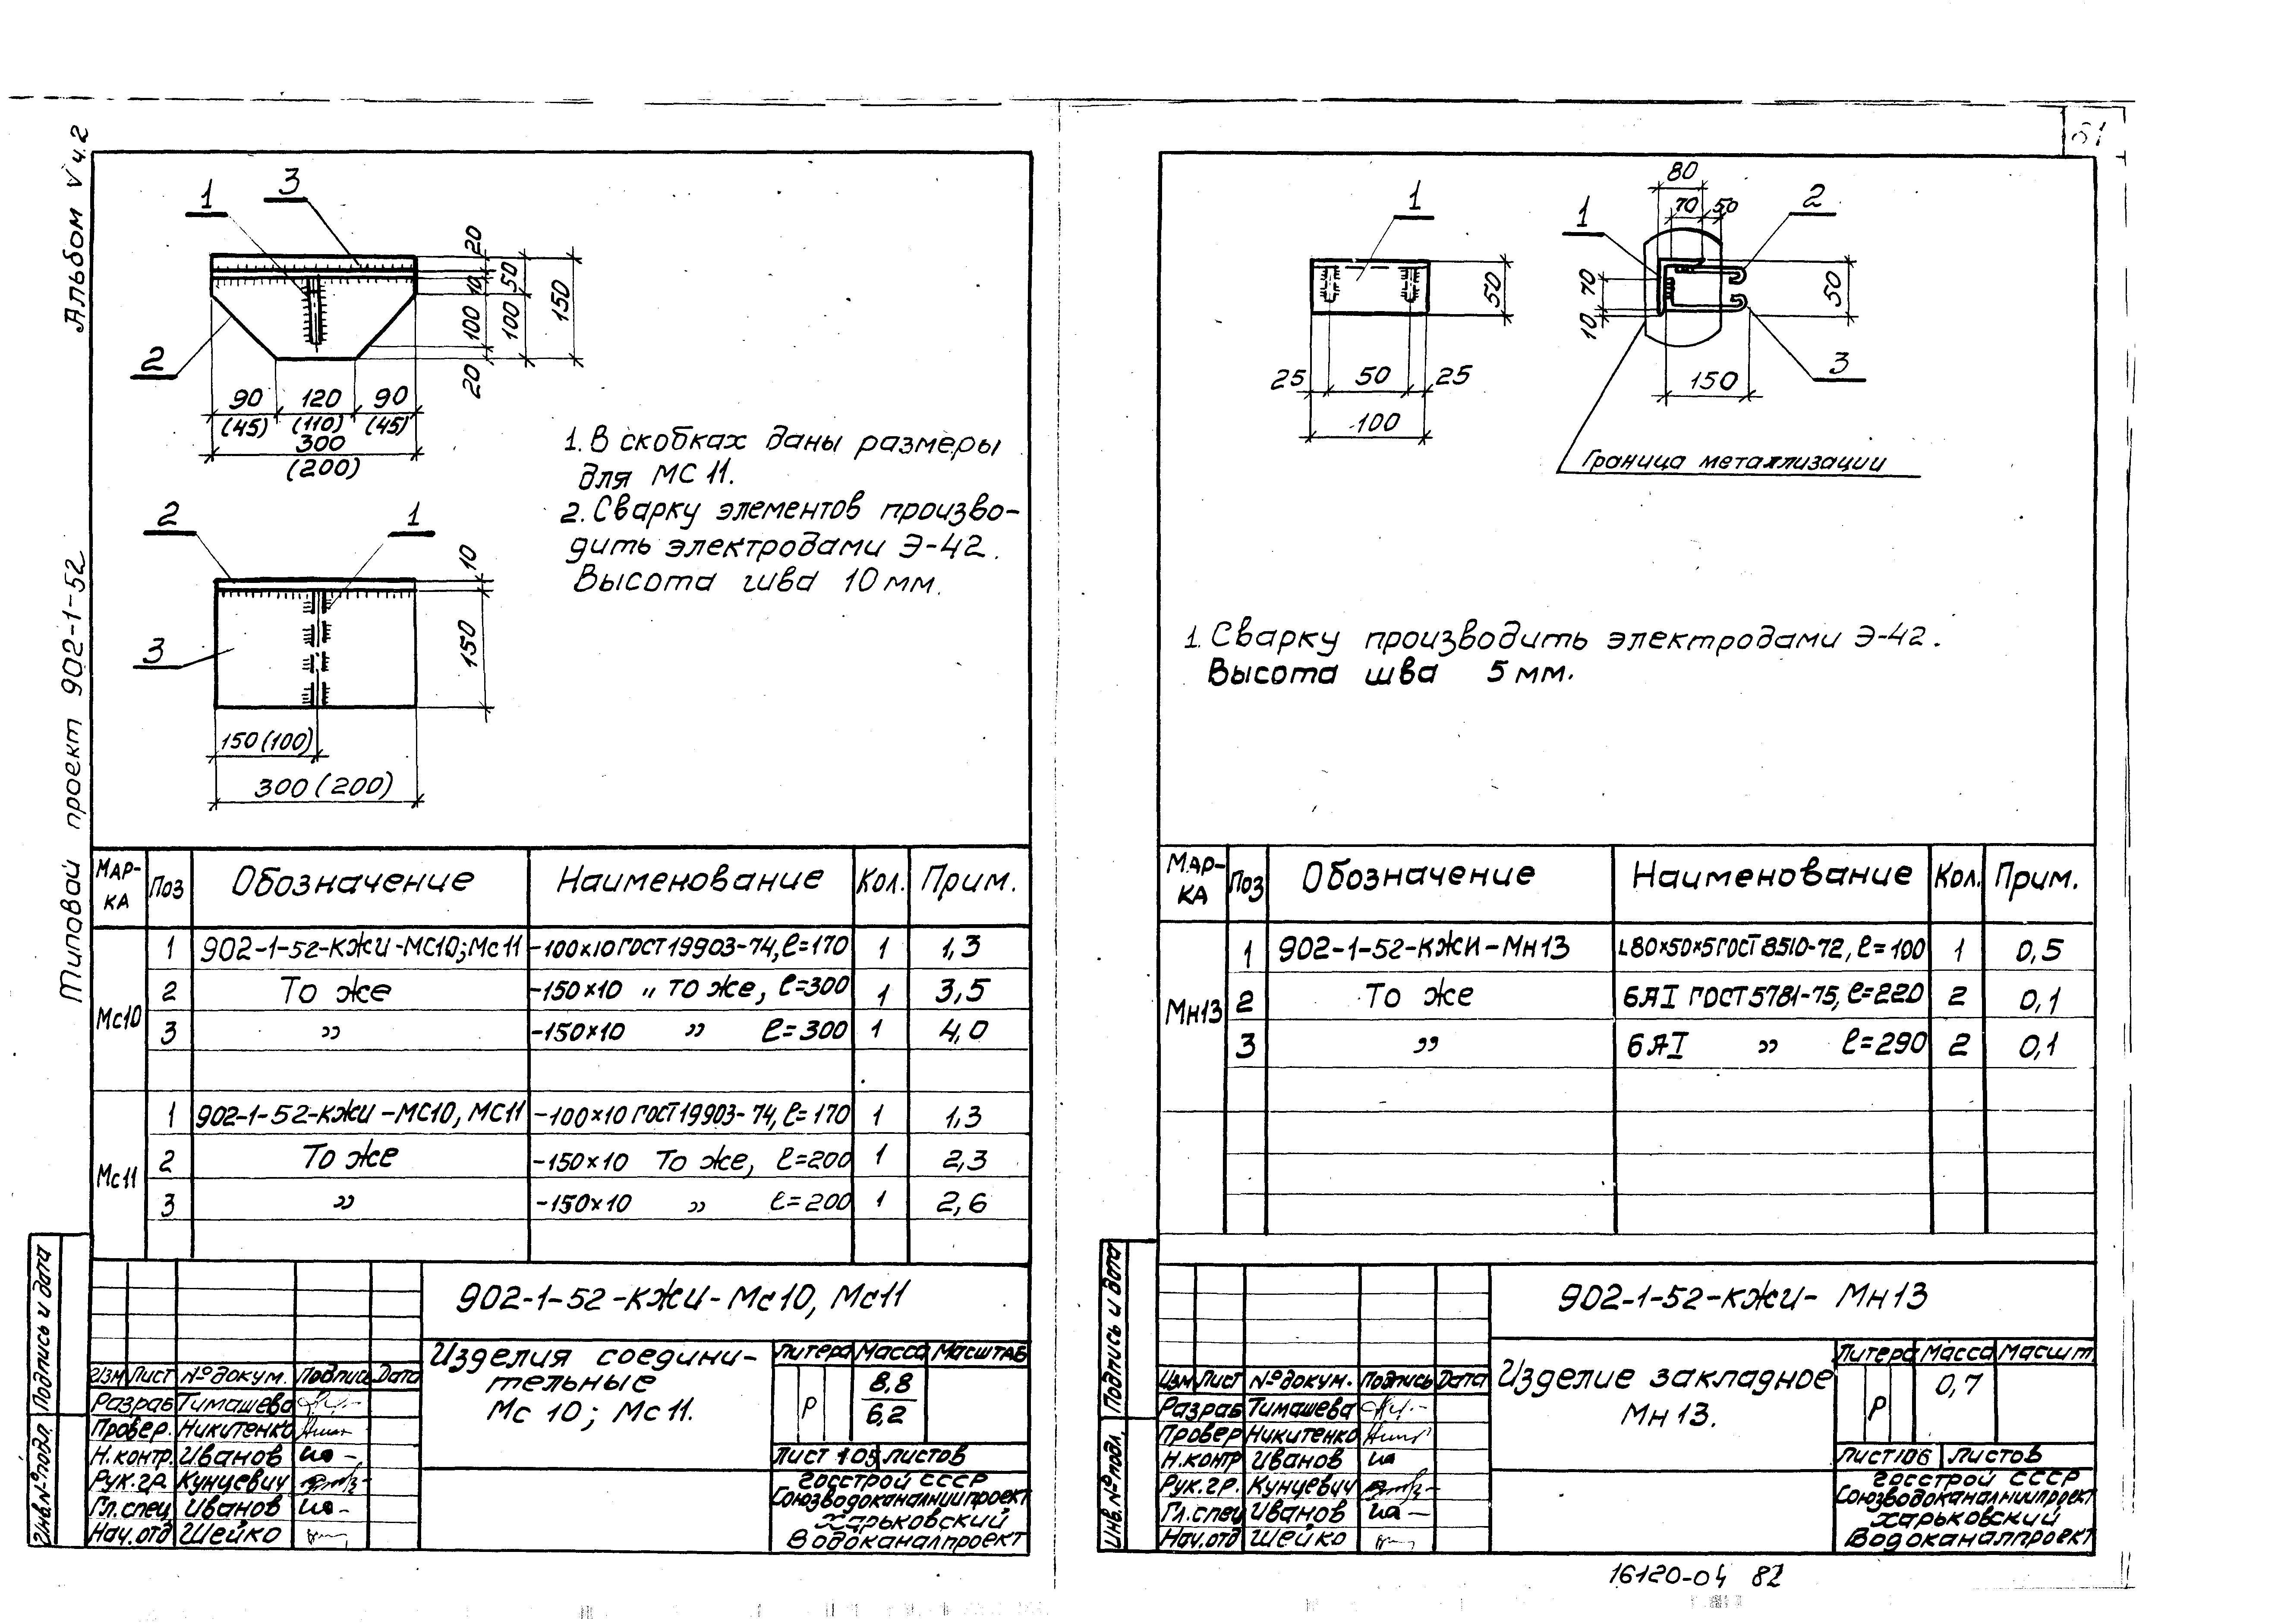 Альбом V ч.2
Типовой проект 902-1-52
1
3
2
20
10
50
100
100
150
20
90
120
90
(45)
(110)
(45)
300
(200)
2
1
3
10
150
150(100)
300(200)
1. В скобках даны размеры
для МС 11.
2. Сварку элементов произво-
дить электродами Э-42.
Высота шва 10 мм.
Мар-ка Поз Обозначение Наименование Кол. Прим.
Мс10
1 902-1-52-КЖИ-МС10; Мс11 -100×10 ГОСТ 19903-74, ℓ=170 1 1,3
2 То же -150×10 " то же, ℓ=300 1 3,5
3 " -150×10 " ℓ=300 1 4,0
Мс11
1 902-1-52-КЖИ-МС10, МС11 -100×10 ГОСТ 19903-74, ℓ=170 1 1,3
2 То же -150×10 То же, ℓ=200 1 2,3
3 " -150×10 " ℓ=200 1 2,6
902-1-52-КЖИ-Мс10, Мс11
Изделия соедини-
тельные
Мс 10; Мс11.
Литера Масса Масштаб
Р 8,8
6,2
Лист 105 Листов
Госстрой СССР
Союзводоканалниипроект
Харьковский
Водоканалпроект
Изм Лист № докум. Подпись Дата
Разраб Тимашева
Провер. Никитенко
Н.контр. Иванов
Рук.гр. Кунцевич
Гл.спец Иванов
Нач.отд Шейко
Подпись и дата
Инв.№ подл.
1
50
25
50
25
100
80
70
50
1
2
70
10
50
3
150
Граница металлизации
1. Сварку производить электродами Э-42.
Высота шва 5 мм.
Мар-ка Поз Обозначение Наименование Кол. Прим.
Мн13
1 902-1-52-КЖИ-Мн13 L80×50×5 ГОСТ 8510-72, ℓ=100 1 0,5
2 То же 6АI ГОСТ 5781-75, ℓ=220 2 0,1
3 " 6АI " ℓ=290 2 0,1
902-1-52-КЖИ- Мн13
Изделие закладное
Мн 13.
Литера Масса Масшт
Р 0,7
Лист 106 Листов
Госстрой СССР
Союзводоканалниипроект
Харьковский
Водоканалпроект
Изм Лист № докум. Подпись Дата
Разраб Тимашева
Провер Никитенко
Н.контр Иванов
Рук.гр. Кунцевич
Гл.спец Иванов
Нач.отд Шейко
Подпись и дата
Инв.№ подл.
16120-04 82